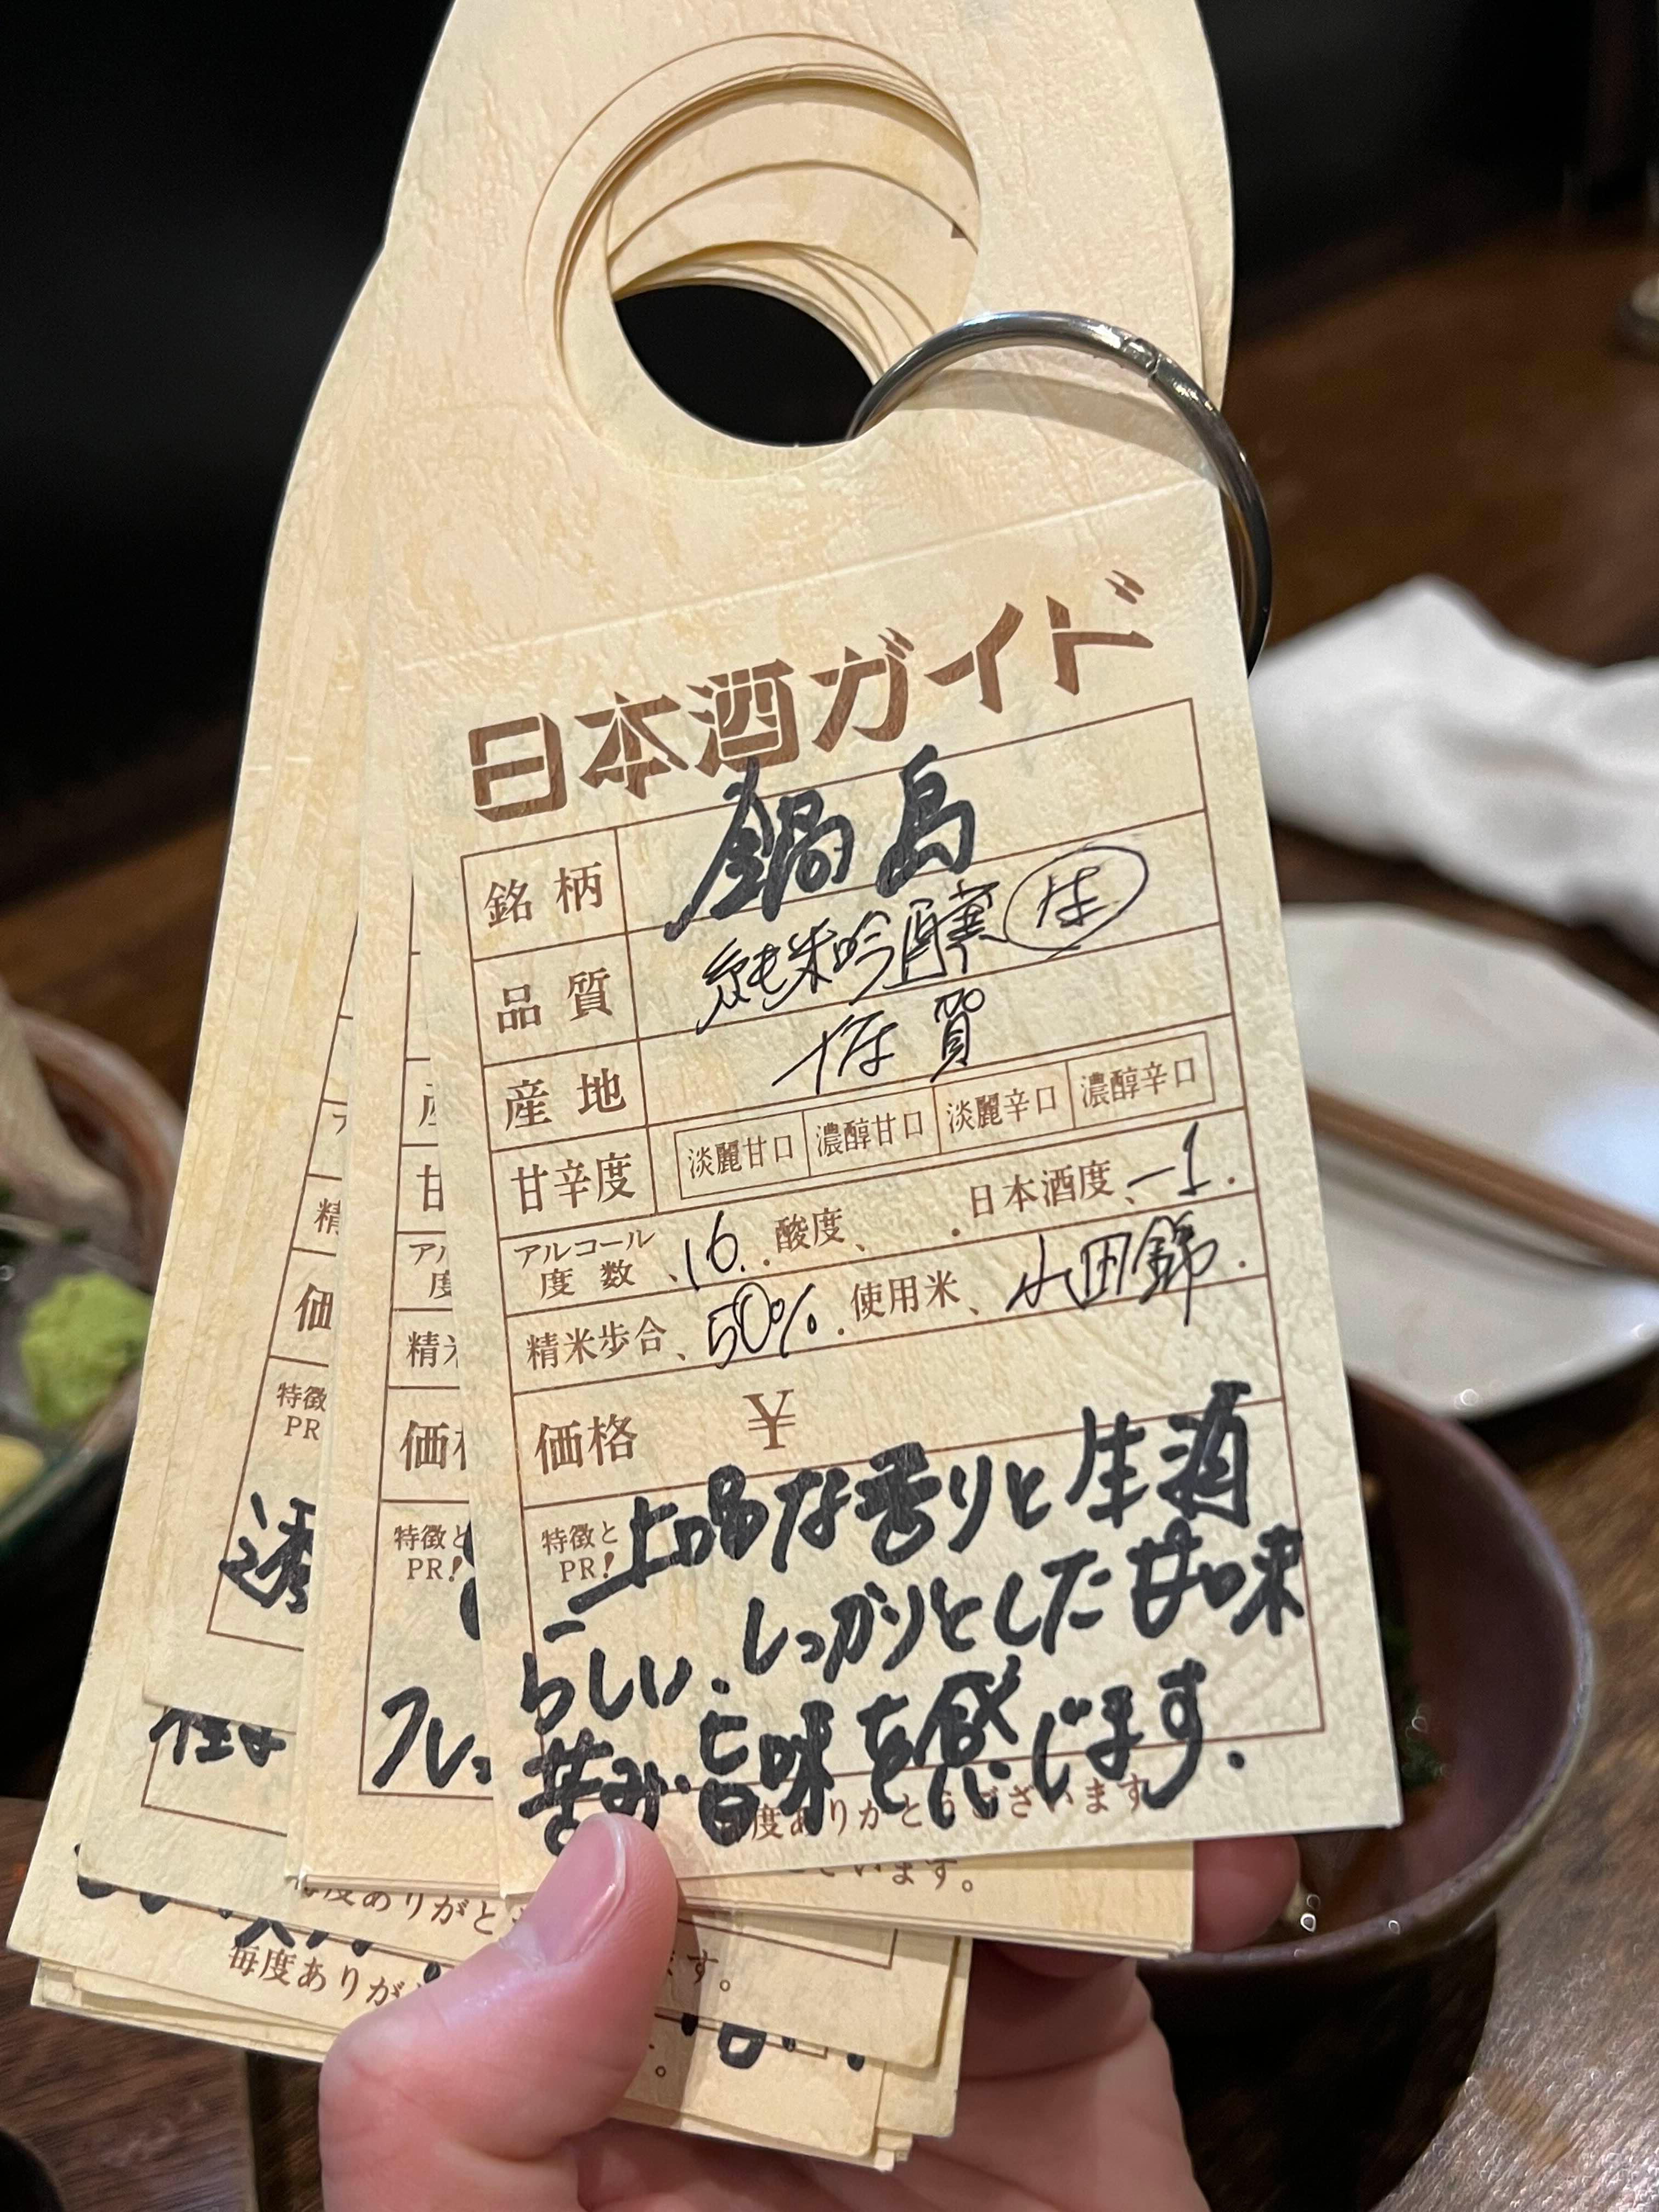 日本酒ガイド
銘柄 鍋島
品質 純米吟醸 生
産地 佐賀
甘辛度 淡麗甘口 濃醇甘口 淡麗辛口 濃醇辛口
アルコール度数、16.. 酸度、 . 日本酒度、-1.
精米歩合、50%. 使用米、山田錦.
価格 ¥
特徴とPR! 上品な香りと生酒
らしい、しっかりとした甘味
苦み・旨味を感じます。
毎度ありがとうございます
アル
度
精
価
特徴と
PR!
フレ
精
価
特徴
PR
透
ございます。
毎度ありがと
毎度ありが
ます。